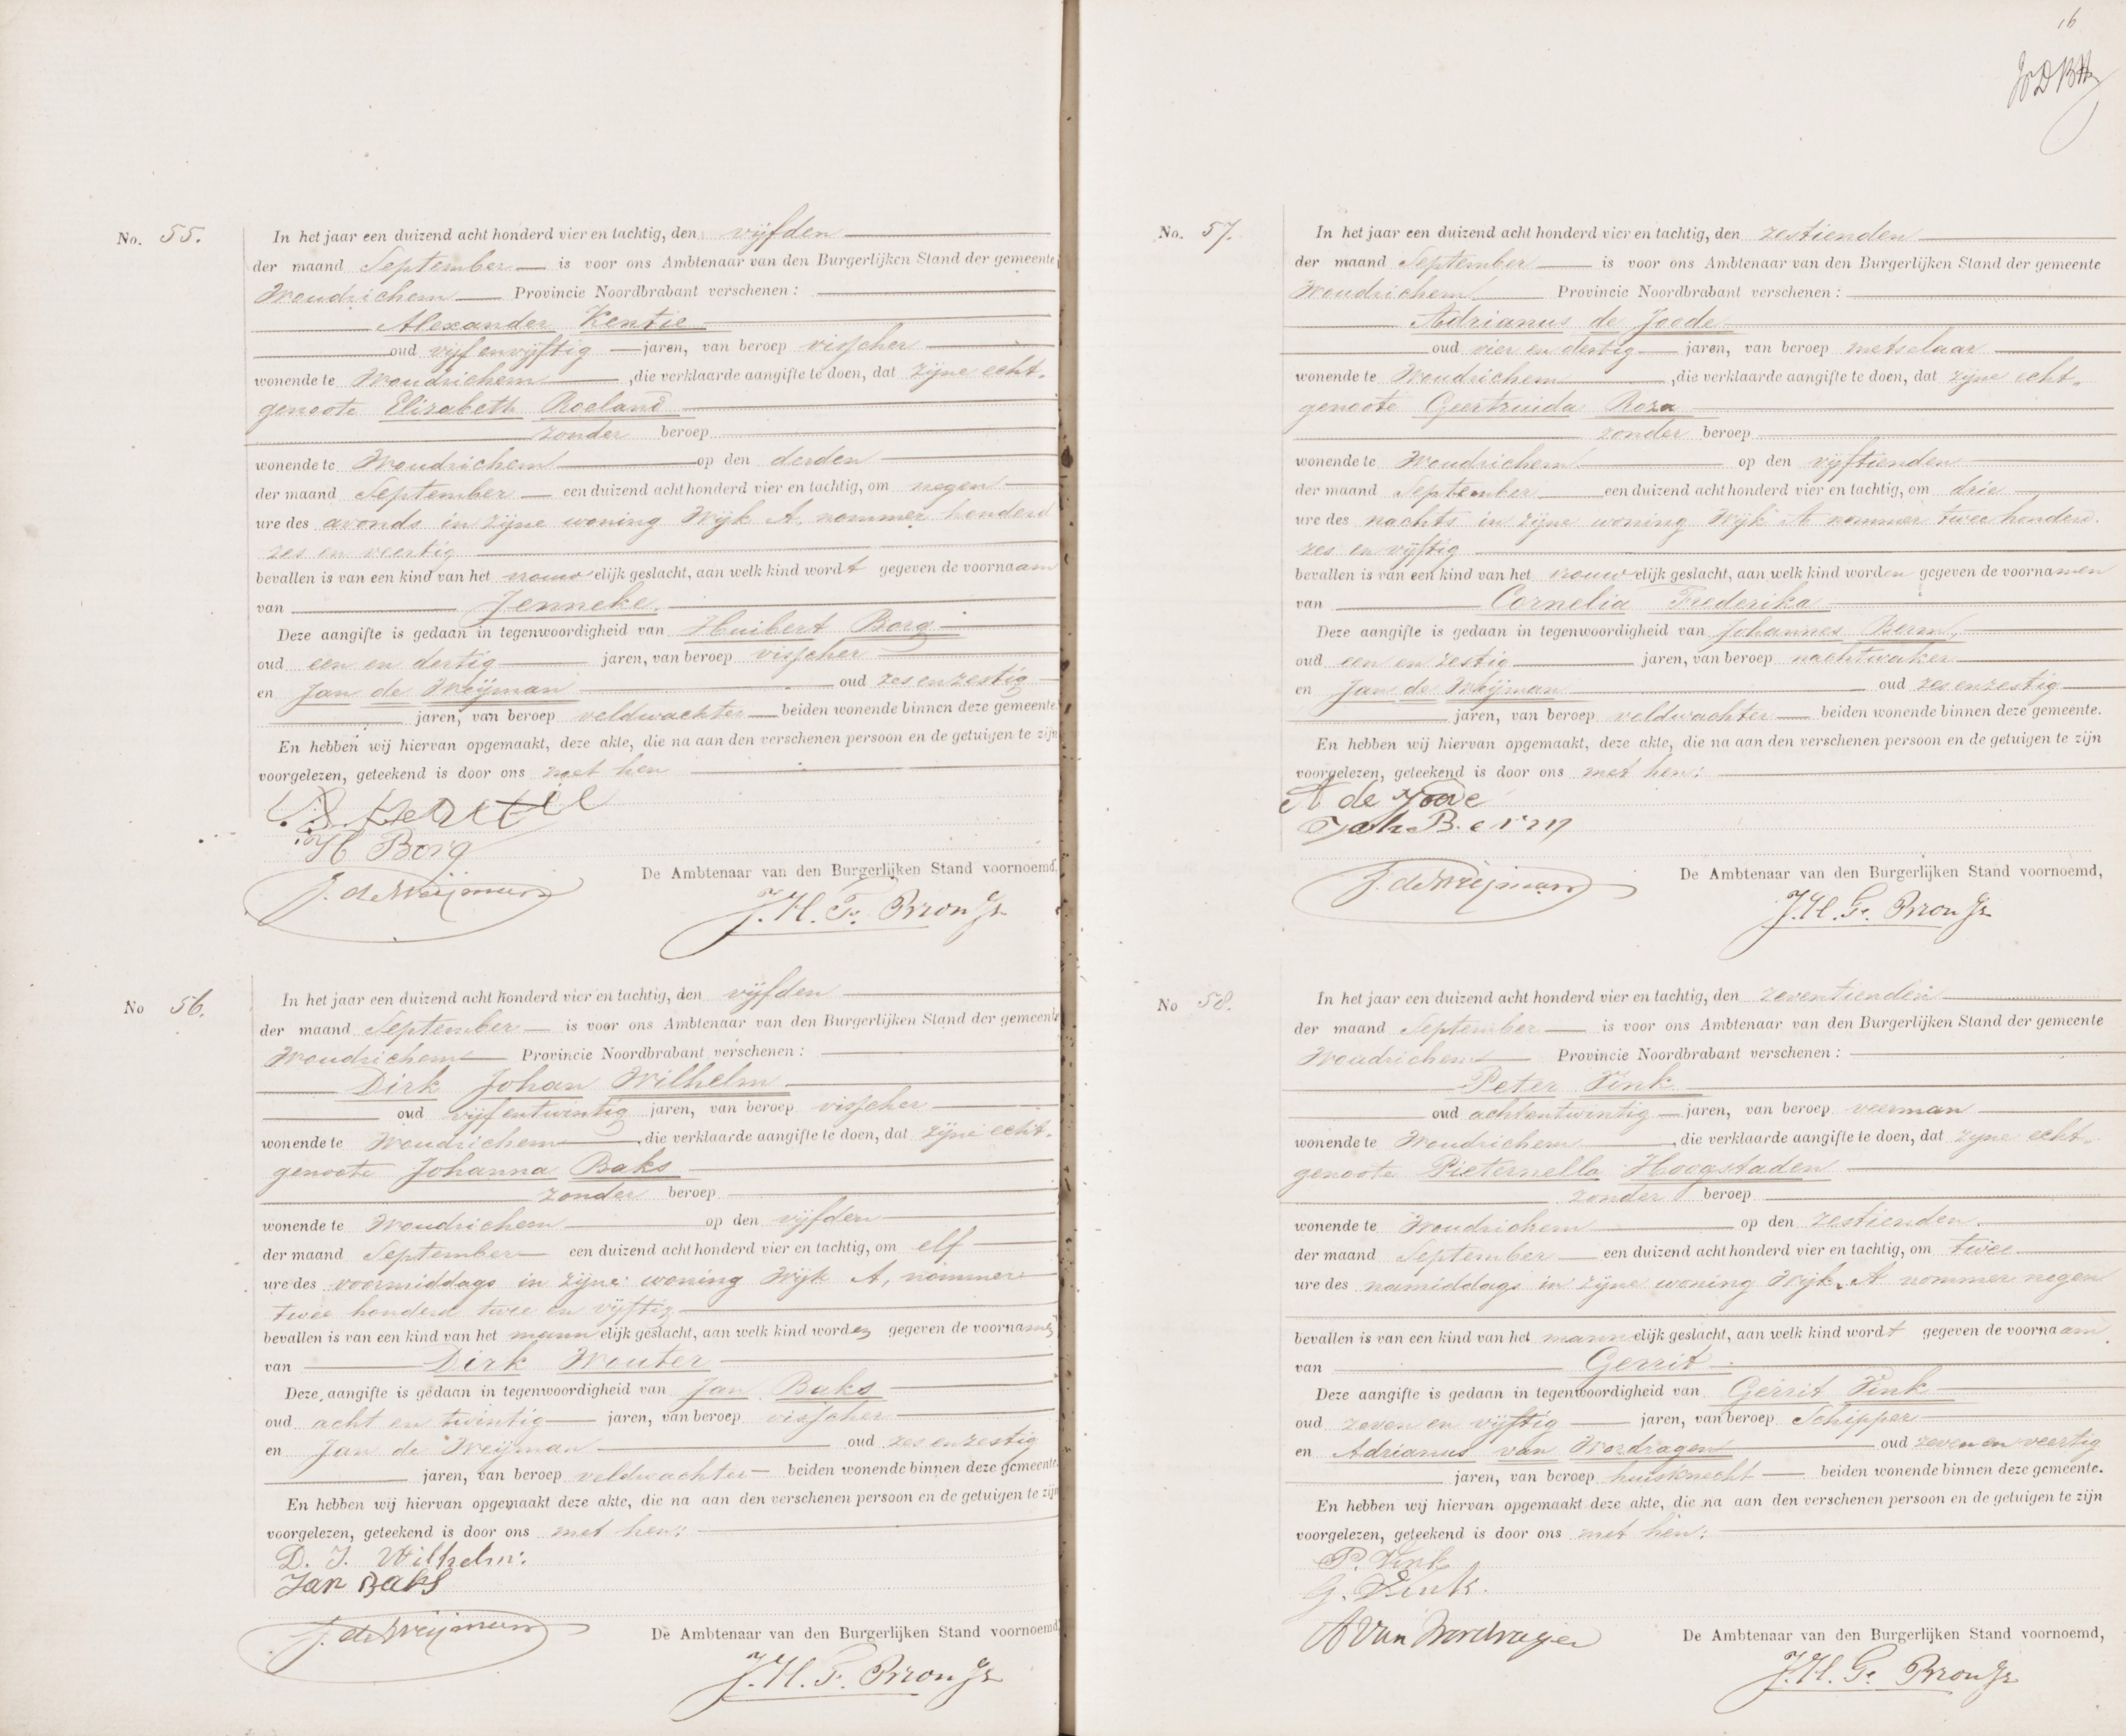 No. 55.
In het jaar een duizend acht honderd vier en tachtig, den vijfden
der maand September is voor ons Ambtenaar van den Burgerlijken Stand der gemeente
Woudrichem Provincie Noordbrabant verschenen:
Alexander Kentie
oud vijf en vijftig jaren, van beroep visscher
wonende te Woudrichem, die verklaarde aangifte te doen, dat zijne echt-
genoote Elizabeth Roeland
zonder beroep
wonende te Woudrichem op den derden
der maand September een duizend acht honderd vier en tachtig, om negen
ure des avonds in zijne woning Wijk A, nommer honderd
zes en veertig
bevallen is van een kind van het vrouwelijk geslacht, aan welk kind wordt gegeven de voornaam
van Jenneke.
Deze aangifte is gedaan in tegenwoordigheid van Huibert Borg
oud een en dertig jaren, van beroep visscher
en Jan de Weijman oud zes en zestig
jaren, van beroep veldwachter beiden wonende binnen deze gemeente.
En hebben wij hiervan opgemaakt, deze akte, die na aan den verschenen persoon en de getuigen te zijn
voorgelezen, geteekend is door ons met hen
Kentie
H Borg
J. de Weijman
De Ambtenaar van den Burgerlijken Stand voornoemd,
No 56.
In het jaar een duizend acht honderd vier en tachtig, den vijfden
der maand September is voor ons Ambtenaar van den Burgerlijken Stand der gemeente
Woudrichem Provincie Noordbrabant verschenen:
Dirk Johan Wilhelm
oud vijf en twintig jaren, van beroep visscher
wonende te Woudrichem, die verklaarde aangifte te doen, dat zijne echt-
genoote Johanna Baks
zonder beroep
wonende te Woudrichem op den vijfden
der maand September een duizend acht honderd vier en tachtig, om elf
ure des voormiddags in zijne woning Wijk A, nommer
twee honderd twee en vijftig
bevallen is van een kind van het mannelijk geslacht, aan welk kind worden gegeven de voornamen
van Dirk Wouter
Deze aangifte is gedaan in tegenwoordigheid van Jan Baks
oud acht en twintig jaren, van beroep visscher
en Jan de Weijman oud zes en zestig
jaren, van beroep veldwachter beiden wonende binnen deze gemeente.
En hebben wij hiervan opgemaakt deze akte, die na aan den verschenen persoon en de getuigen te zijn
voorgelezen, geteekend is door ons met hen:
D. J. Wilhelm.
Jan Baks
J. de Weijman
De Ambtenaar van den Burgerlijken Stand voornoemd,
16
No. 57.
In het jaar een duizend acht honderd vier en tachtig, den zestienden
der maand September is voor ons Ambtenaar van den Burgerlijken Stand der gemeente
Woudrichem Provincie Noordbrabant verschenen:
Adrianus de Joode
oud vier en dertig jaren, van beroep metselaar
wonende te Woudrichem, die verklaarde aangifte te doen, dat zijne echt-
genoote Geertruida Roza
zonder beroep
wonende te Woudrichem op den vijftienden
der maand September een duizend acht honderd vier en tachtig, om drie
ure des nachts in zijne woning Wijk A nommer twee honderd
zes en vijftig
bevallen is van een kind van het vrouwelijk geslacht, aan welk kind worden gegeven de voornamen
van Cornelia Frederika
Deze aangifte is gedaan in tegenwoordigheid van Johannes Berm,
oud een en zestig jaren, van beroep nachtwaker
en Jan de Weijman oud zes en zestig
jaren, van beroep veldwachter beiden wonende binnen deze gemeente.
En hebben wij hiervan opgemaakt, deze akte, die na aan den verschenen persoon en de getuigen te zijn
voorgelezen, geteekend is door ons met hen:
A de Joode
Joh. Berm
J. de Weijman
De Ambtenaar van den Burgerlijken Stand voornoemd,
No 58.
In het jaar een duizend acht honderd vier en tachtig, den zeventienden
der maand September is voor ons Ambtenaar van den Burgerlijken Stand der gemeente
Woudrichem Provincie Noordbrabant verschenen:
Peter Vink
oud acht en twintig jaren, van beroep veerman
wonende te Woudrichem, die verklaarde aangifte te doen, dat zijne echt-
genoote Pieternella Hoogstaden
zonder beroep
wonende te Woudrichem op den zestienden
der maand September een duizend acht honderd vier en tachtig, om twee
ure des namiddags in zijne woning Wijk A nommer negen
bevallen is van een kind van het mannelijk geslacht, aan welk kind wordt gegeven de voornaam
van Gerrit
Deze aangifte is gedaan in tegenwoordigheid van Gerrit Vink
oud zeven en vijftig jaren, van beroep Schipper
en Adrianus van Wordragen oud zeven en veertig
jaren, van beroep huisknecht beiden wonende binnen deze gemeente.
En hebben wij hiervan opgemaakt deze akte, die na aan den verschenen persoon en de getuigen te zijn
voorgelezen, geteekend is door ons met hen:
P. Vink
G. Vink.
A van Wordragen
De Ambtenaar van den Burgerlijken Stand voornoemd,